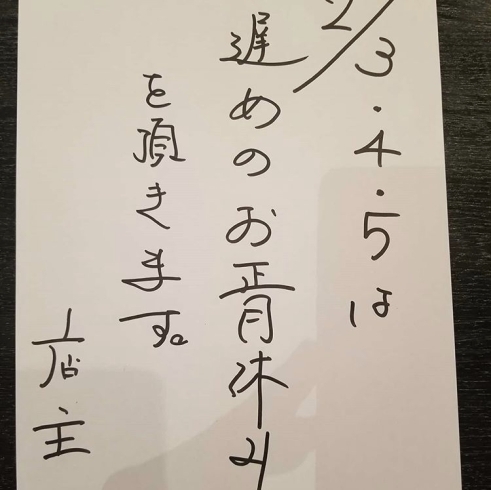 2/3・4・5は
遅めのお正月休み
を頂きます。
店主